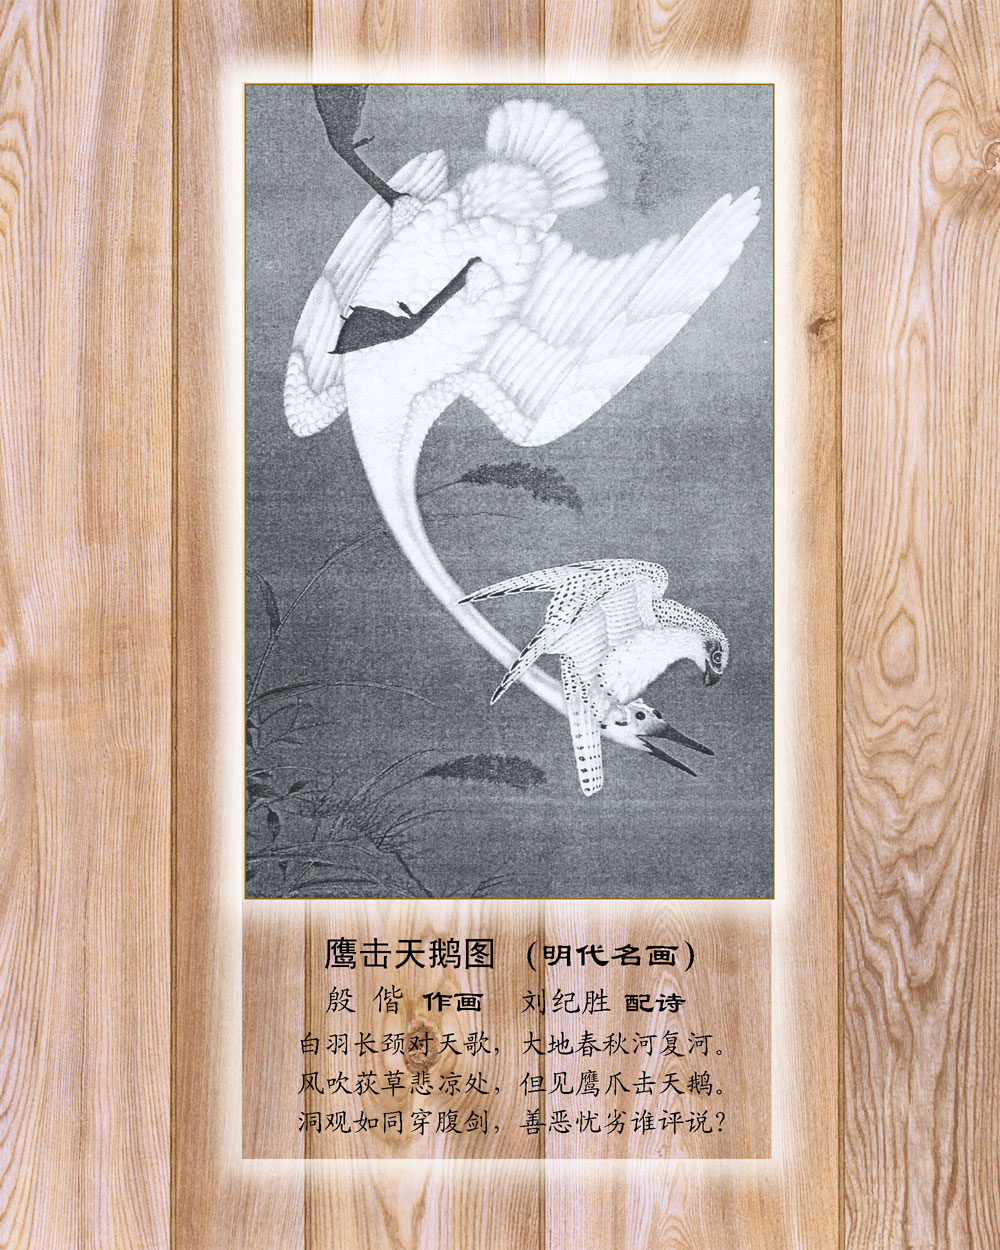 鹰击天鹅图 (明代名画)
殷 偕 作画 刘纪胜 配诗
白羽长颈对天歌，大地春秋河复河。
风吹荻草悲凉处，但见鹰爪击天鹅。
洞观如同穿腹剑，善恶忧劣谁评说？